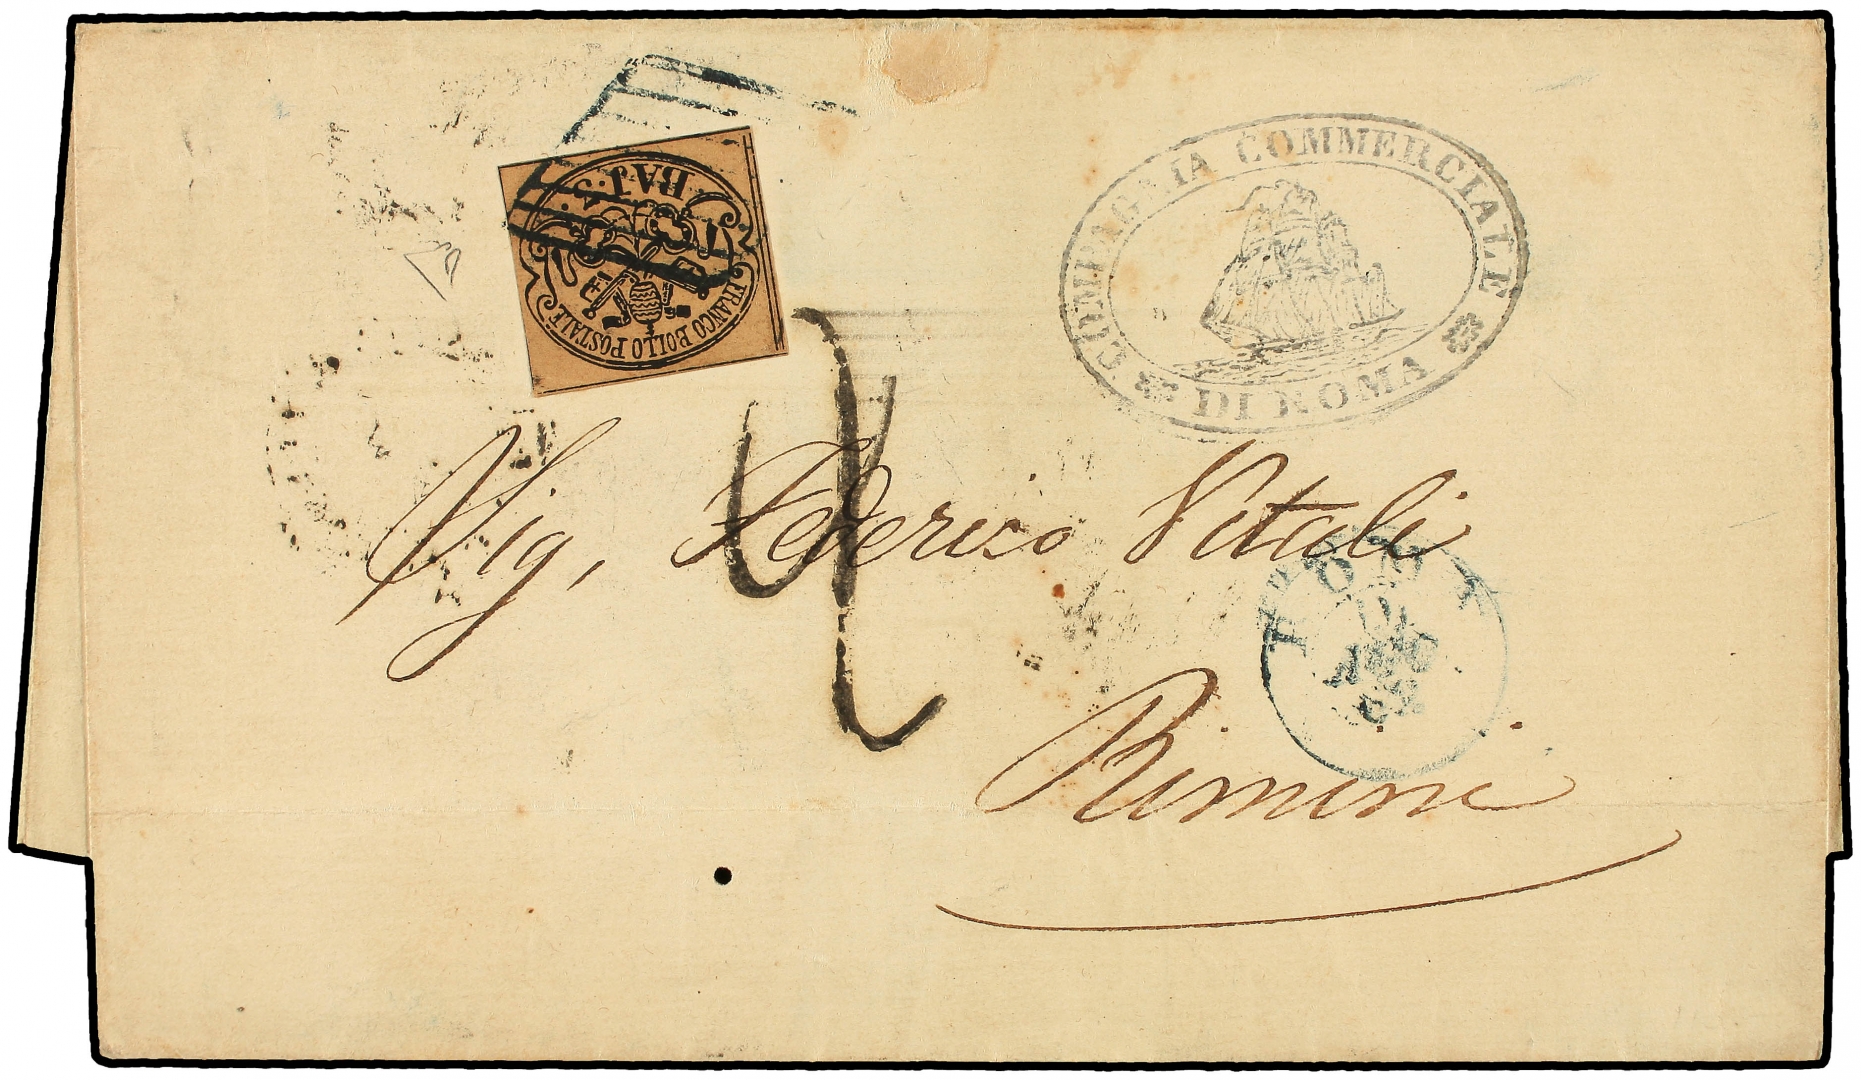 BAJ. 3.
FRANCO BOLLO POSTALE
COMPAGNIA COMMERCIALE
DI ROMA
Sig, Federico Vitali
ROMA
AGO
62
Rimini